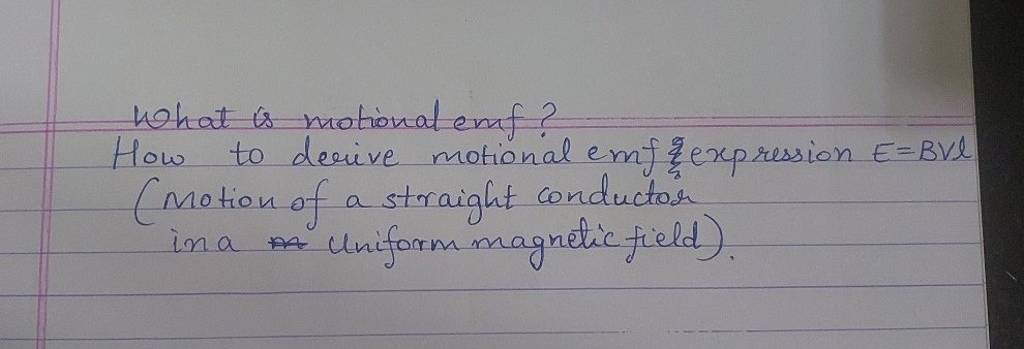 What is motional emf?
How to derive motional emf expression E=BVl
(Motion of a straight conductor
in a Uniform magnetic field).